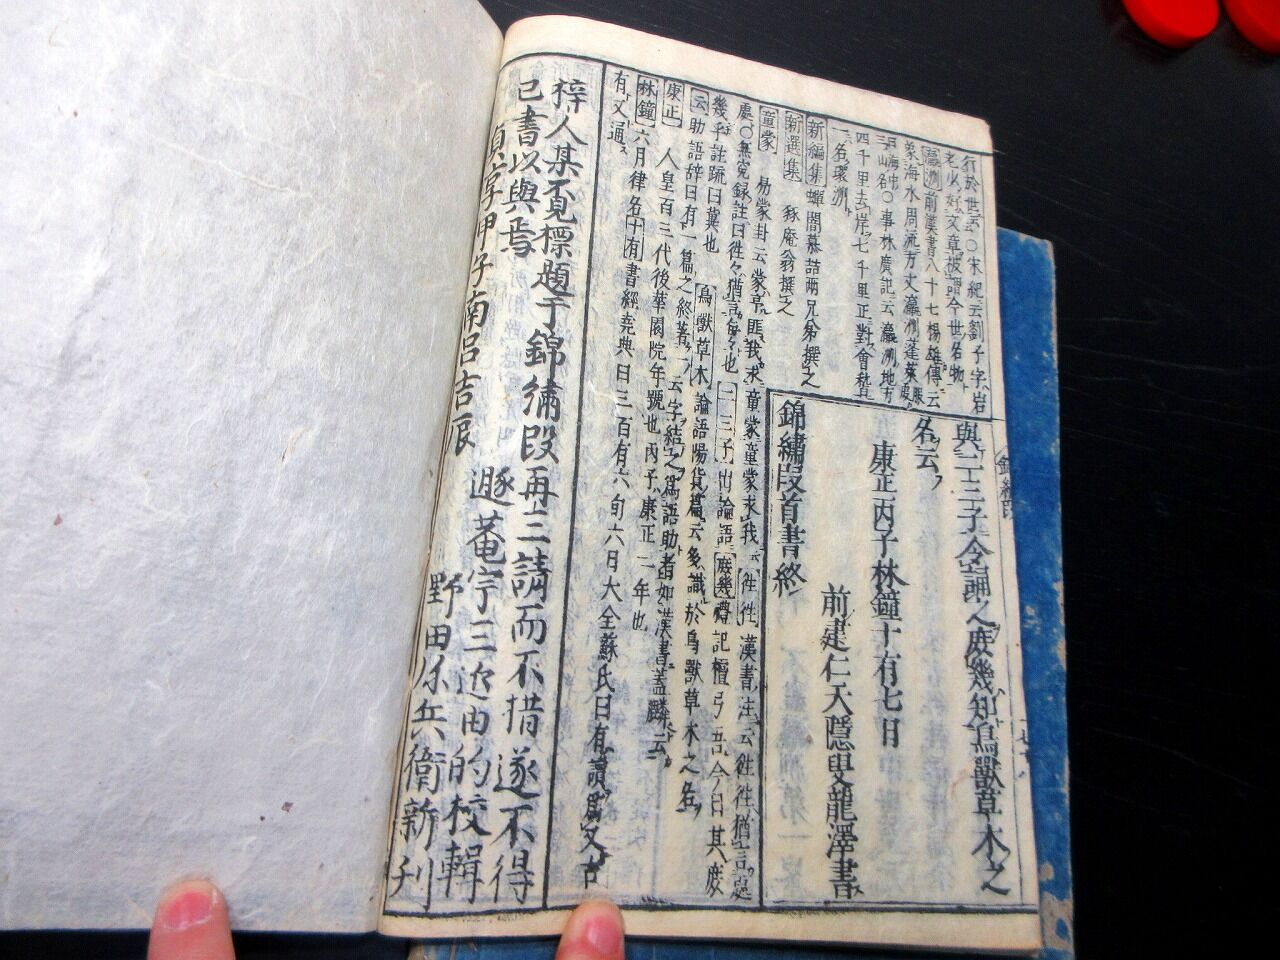 行於世云○宋紀云劉子字岩
老少好文章被謂今世名物
瀛洲前漢書八十七楊雄傳云
象海水周流方丈瀛洲蓬萊服
海中山名○事林廣記云瀛洲地方
四千里去岸七千里正對會稽
一名環洲
新編集蟬闇慕喆兩兄弟撰之
新選集 豩庵翁撰之
童蒙 易蒙卦云蒙亨匪我求童蒙童蒙求我云往往漢書注云往往猶言處
處○無冤録註曰往々猶言每々也二三子出論語庶幾禮記檀弓吾今日其庶
幾乎註疏曰冀也鳥獸草木論語陽貨篇云多識於鳥獸草木之名
云助語辞曰有一篇之終著一云字結之爲語助者如漢書蓋麟云
康正 人皇百三代後華園院年號也丙子康正二年也
林鐘六月律名十有書經堯典曰三百有六旬六月大全蘇氏曰有讀爲又古
有又通
與二三子令誦之庶幾知鳥獸草木之
名云
康正丙子林鐘十有七日
前建仁天隱叟龍澤書
錦繡段首書終
梓人某不覓標題于錦繡段再三請而不措遂不得
已書以與焉
貞享甲子南呂吉辰
遯菴宇三近由的校輯
野田弥兵衛新刊